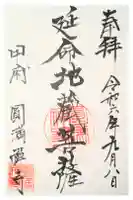 奉拝 令和六年九月八日
延命地蔵菩薩
田府 圓満寺